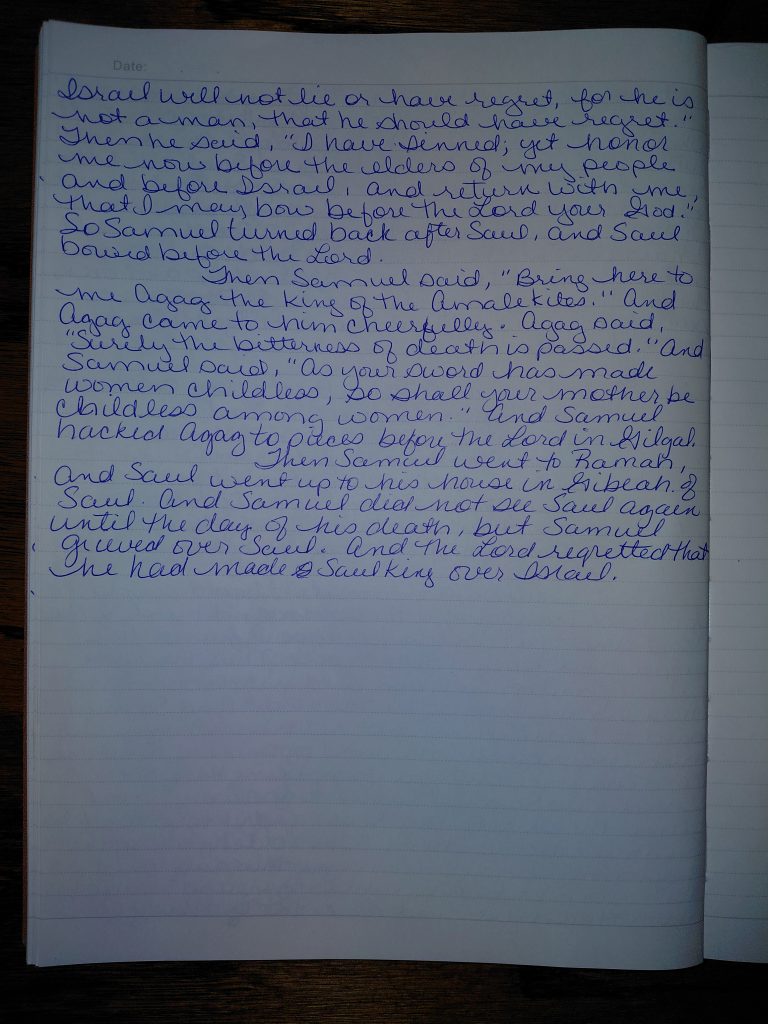 Date:
Israel will not lie or have regret, for he is
not a man, that he should have regret."
Then he said, "I have sinned; yet honor
me now before the elders of my people
and before Israel, and return with me,
that I may bow before the Lord your God."
So Samuel turned back after Saul, and Saul
bowed before the Lord.
Then Samuel said, "Bring here to
me Agag the king of the Amalekites." And
Agag came to him cheerfully. Agag said,
"Surely the bitterness of death is passed." And
Samuel said, "As your sword has made
women childless, so shall your mother be
childless among women." And Samuel
hacked Agag to pieces before the Lord in Gilgal.
Then Samuel went to Ramah,
and Saul went up to his house in Gibeah of
Saul. And Samuel did not see Saul again
until the day of his death, but Samuel
grieved over Saul. And the Lord regretted that
he had made Saul king over Israel.